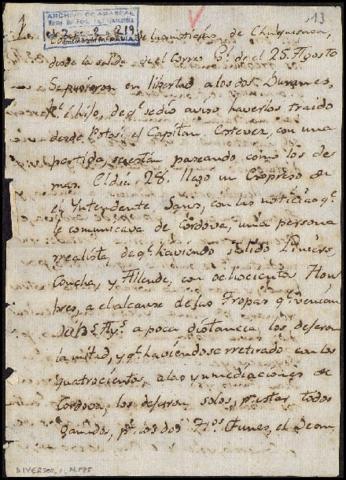 13
ARCHIVO DE ABASCAL
de las noticias de Chuquisaca,
desde la salida del Correo Gl. de 25. Agosto
Se pusieron en libertad a los dos
Pe. é hijo, de qe. se dió aviso haverlos traido
desde Potosi el Capitan con una
partida, y estan paseando como los de
mas. El dia 28. llegó un Expreso al
el Yntendente Sans, con las noticias qe.
le comunicava de Cordova, una persona
realista, de qe. haviendo salido Liniers,
Concha, y Allende, con ochocientos Hom
bres, a el alcanse de las Tropas qe. venian
de Bs. Ays. a poca distancia, los dejaron
la mitad, y qe. haviendose retirado con los
quatrocientos, a las ynmediaciones de
Cordova, los dejaron solos, pr. estar todos
ganados, pr. los dos Funes, el Dean,
DIVERSOS